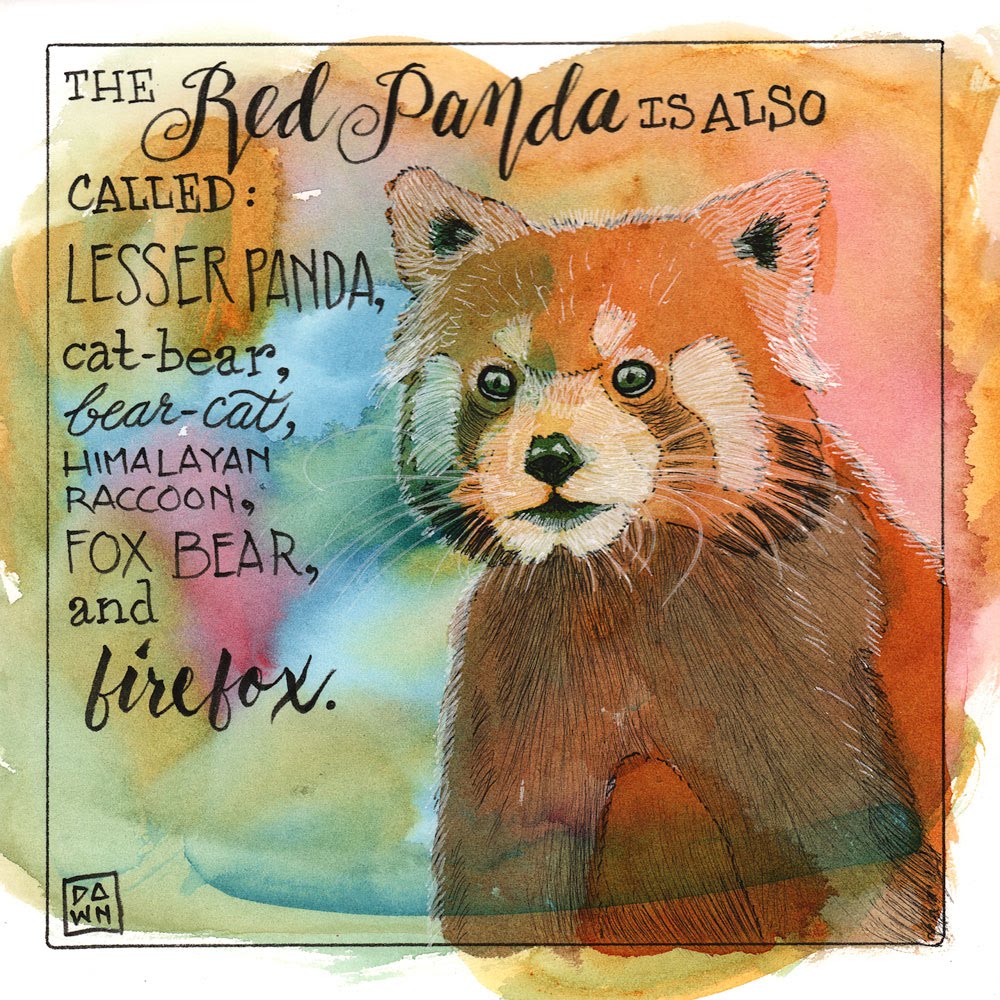 THE Red Panda IS ALSO
CALLED:
LESSER PANDA,
cat-bear,
bear-cat,
HIMALAYAN
RACCOON,
FOX BEAR,
and
firefox.
DA
WN